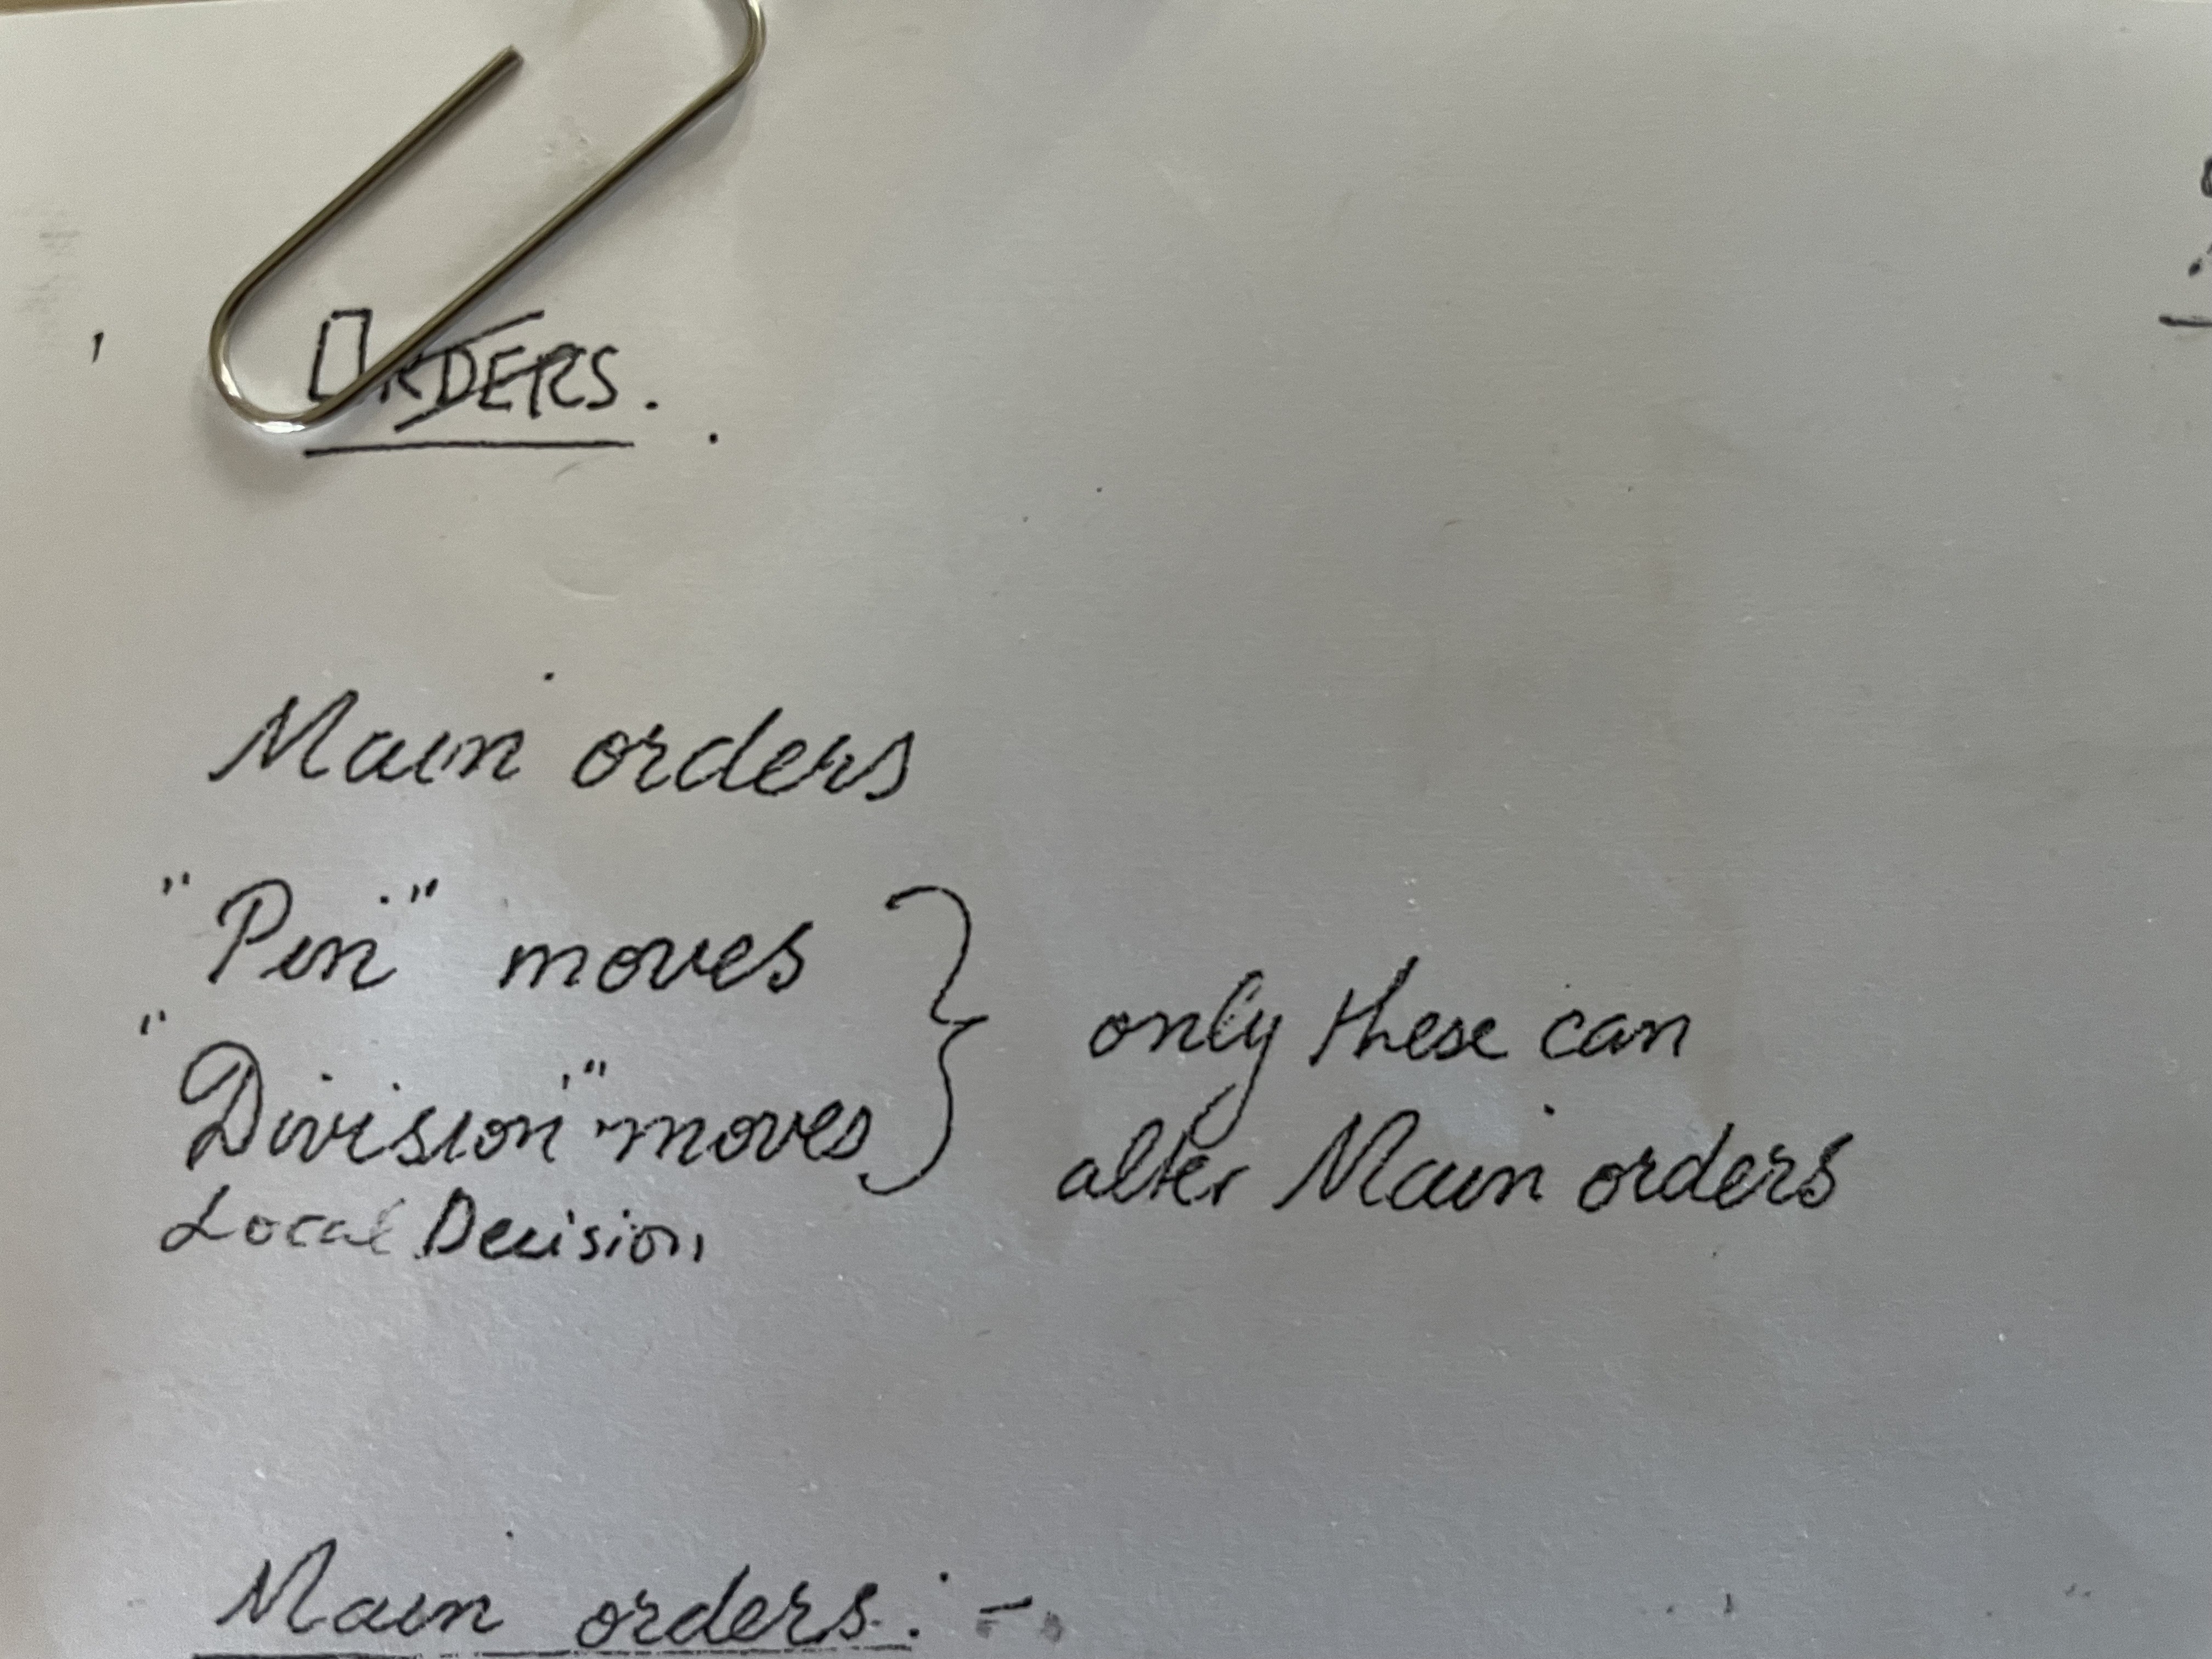 ORDERS.
Main orders
"Pin" moves
"Division" moves
only these can
alter Main orders
Local Decision
Main orders: -